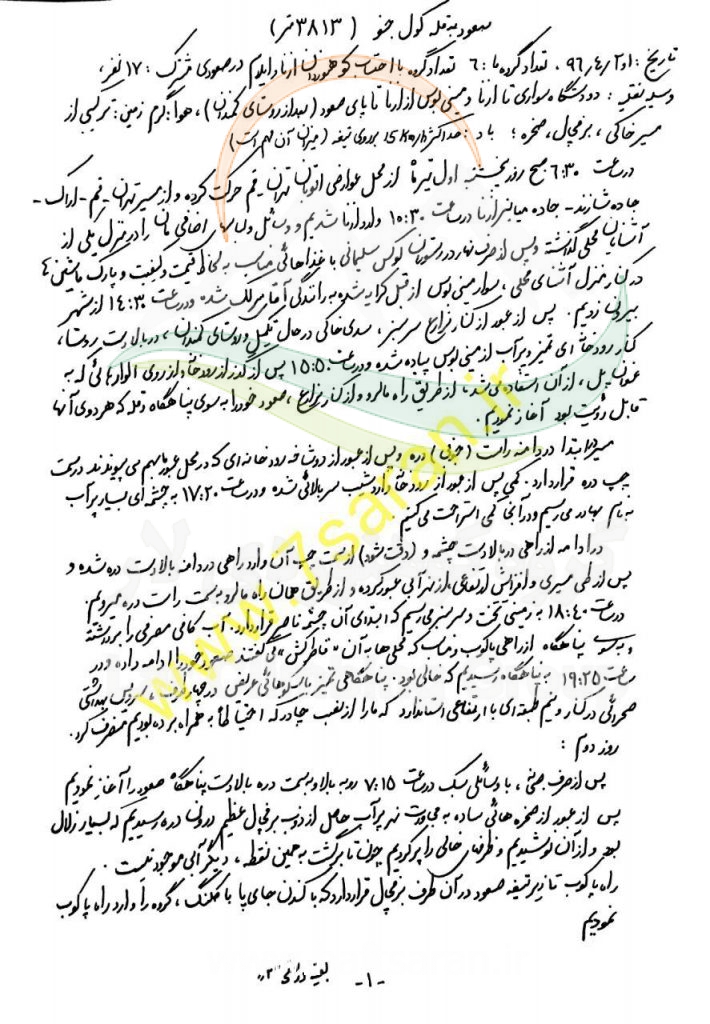 صعود به قله کول جنو ( ۳۸۱۳ متر )
تاریخ : ۱و۲/۴/۹۶ ، تعداد گروه ما : ۶ تعداد گروه با احتساب کوهنوردان ازنا و ایلام در صعودی مشترک : ۱۷ نفر،
وسیله نقلیه : دو دستگاه سواری تا ازنا و مینی بوس از ازنا تا پای صعود ( بعد از روستای کمندان ) ، هوا : گرم زمین : ترکیبی از
مسیر خاکی ، برفچال ، صخره ؛ باد : حداکثر 15 km/h بر روی تیغه ( میزان آن مهم است )
در ساعت ۶:۳۰ صبح روز پنجشنبه اول تیرماه از محل عوارضی اتوبان تهران - قم حرکت کرده و از مسیر تهران - قم - اراک -
جاده شازند - جاده میانبر ازنا در ساعت ۱۰:۳۰ وارد ازنا شدیم و وسائل و لباسهای اضافی مان را در منزل یکی از
آشنایان محلی گذاشته و پس از صرف نهار در رستوران لوکس سلیمانی با غذاهائی مناسب به لحاظ قیمت و کیفیت و پارک ماشینها
در کنار منزل آشنای محلی ، سوار مینی بوس از قبل کرایه شده به رانندگی آقای سرلک شده و در ساعت ۱۴:۳۰ از شهر
بیرون زدیم . پس از عبور از کنار مزارع سرسبز ، سدی خاکی در حال تکمیل و روستای کمندان ، در بالادست روستا ،
کنار رودخانه ای تمیز و پرآب از مینی بوس پیاده شده و در ساعت ۱۵:۵۰ پس از گذر از رودخانه از روی الوارهائی که به
عنوان پل ، از آن استفاده می شد تا از طریق راه مالرو و از کنار مزارع ، صعود خود را به سوی پناهگاه و قله که هر دوی آنها
قابل رؤیت بود آغاز نمودیم .
مسیر ابتدا در دامنه راست ( جنوبی ) دره و پس از عبور از دو شاخه رودخانه ای که در محل عبور ما بهم می پیوندند در سمت
چپ دره قرار دارد . کمی پس از عبور از رودخانه وارد شیب سربالائی شده و در ساعت ۱۷:۲۰ به چشمه ای بسیار پرآب
به نام می رسیم و در آنجا کمی استراحت می کنیم .
در ادامه از راهی در بالادست چشمه و ( دقت شود ) از سمت چپ آن وارد راهی در دامنه بالادست دره شده و
پس از طی مسیری و افزایش ارتفاعی ، از نهر آبی عبور کرده و از طریق همان راه مالرو به سمت راست دره میرویم .
در ساعت ۱۸:۴۰ به زمینی تخت و سرسبز می رسیم که ابتدای آن چشمه ناصر قرار دارد . آب کافی مصرفی را برداشته
و به سوی پناهگاه از راهی پاکوب و مناسب که محلی ها به آن « قاطرکش » می گفتند صعود خود را ادامه داده و در
ساعت ۱۹:۲۵ به پناهگاه رسیدیم که خالی بود . پناهگاهی تمیز با سکوهائی عریض در چهار طرف ، سرویس بهداشتی
صحرائی در کنار و نیم طبقه ای با ارتفاعی استاندارد که ما را از نصب چادر که احتیاطاً به همراه برده بودیم منصرف کرد .
روز دوم :
پس از صرف صبحانه ، با وسائلی سبک در ساعت ۷:۱۵ رو به بالا و به سمت دره بالادست پناهگاه صعود را آغاز نمودیم
پس از عبور از صخره هائی ساده به مجاورت نهر پرآب حاصل از ذوب برفچال عظیم درون دره رسیدیم که بسیار زلال
بود و از آن نوشیدیم و ظرفهای خالی را پر کردیم چون تا برگشت به همین نقطه ، دیگر آبی موجود نیست .
راه پاکوب تا زیر تیغه صعود در آن طرف برفچال قرار دارد که با کندن جای پا با کلنگ ، گروه را وارد راه پاکوب
نمودیم
-۱-
www.7saran.ir